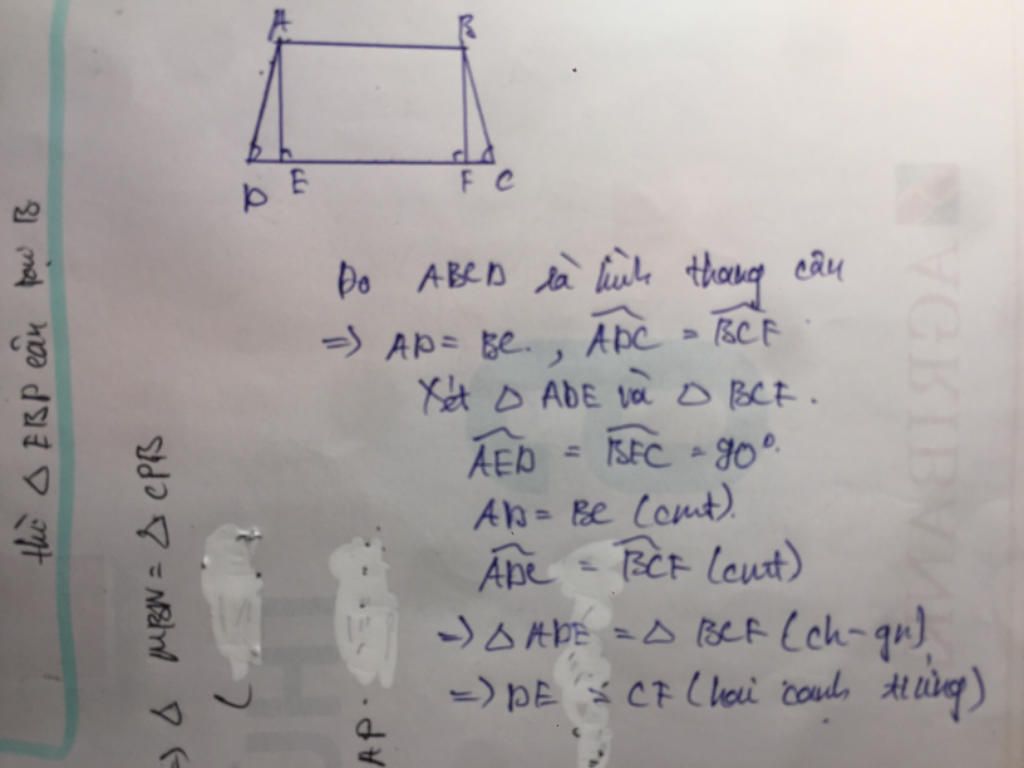 A B
D E F C
Do ABCD là hình thang cân
=> AD = BC , ADC = BCF
Xét △ ADE và △ BCF.
AED = BFC = 90°.
AD = BC (cmt).
ADC = BCF (cmt)
=> △ ADE = △ BCF (ch-gn)
=> DE = CF (hai cạnh tứng)
thì △ EBP cân tại B
=> △ MBN = △ CPB
(
AP.
AGRIBANK